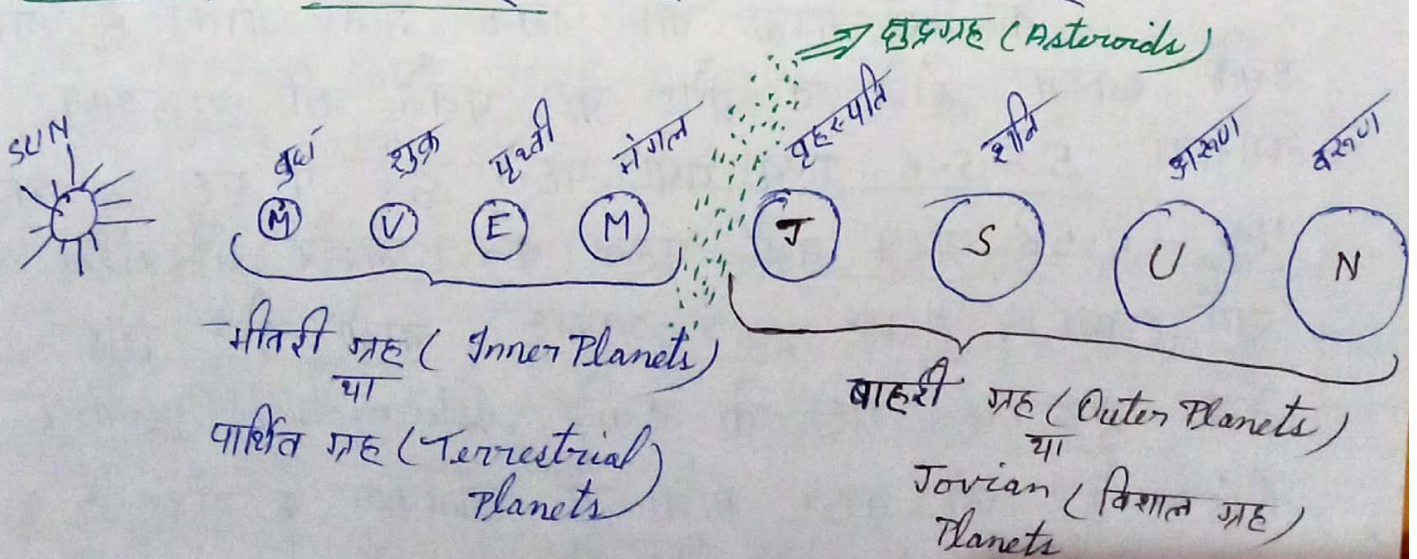 क्षुद्रग्रह (Asteroids)
SUN बुध शुक्र पृथ्वी मंगल बृहस्पति शनि अरुण वरुण
M V E M J S U N
भीतरी ग्रह ( Inner Planets)
या
पार्थित ग्रह (Terrestrial
Planets)
बाहरी ग्रह (Outer Planets)
या
Jovian (विशाल ग्रह)
Planets